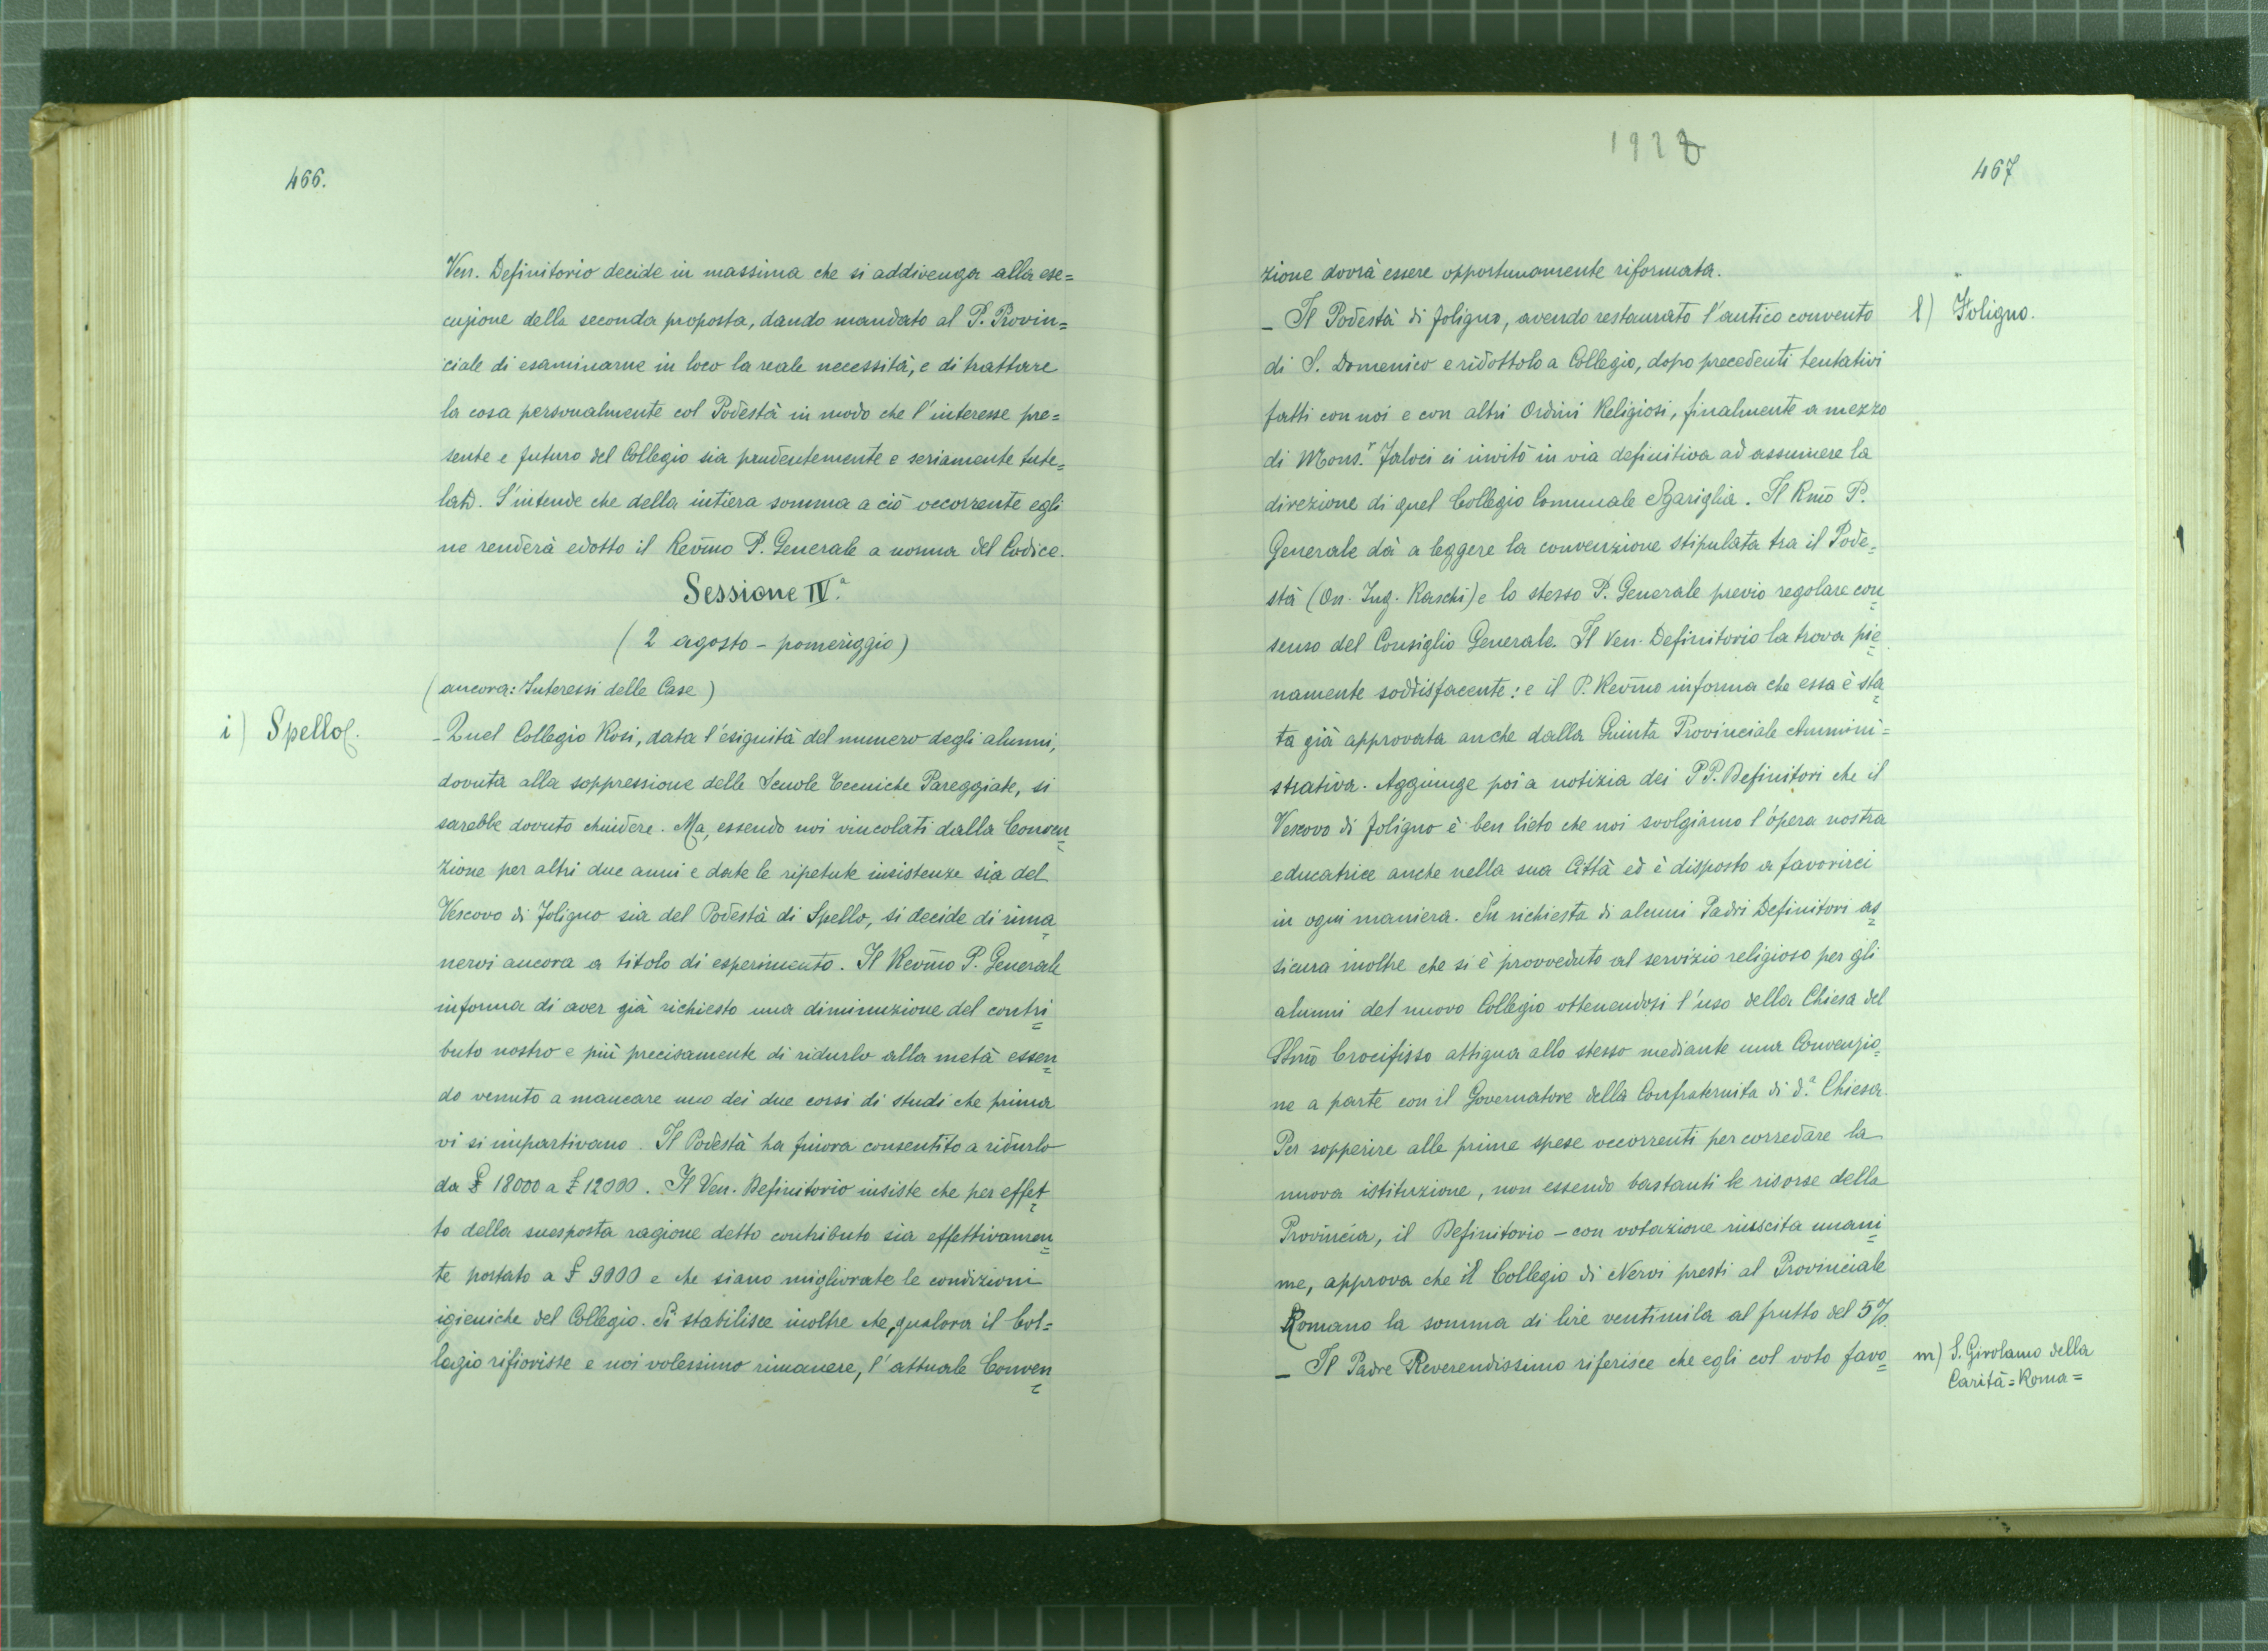 466.
Ven. Definitorio decide in massima che si addivenga alla ese=
cuzione della seconda proposta, dando mandato al P. Provin=
ciale di esaminarne in loco la reale necessità, e di trattare
la cosa personalmente col Podestà in modo che l'interesse pre=
sente e futuro del Collegio sia prudentemente e seriamente tute=
lato. S'intende che della intiera somma a ciò occorrente egli
ne renderà edotto il Rev̄mo P. Generale a norma del Codice.
Sessione IVª.
( 2 agosto - pomeriggio )
( ancora: Interessi delle Case )
i) Spello.
- Quel Collegio Rosi, data l'esiguità del numero degli alunni,
dovuta alla soppressione delle Scuole Tecniche Pareggiate, si
sarebbe dovuto chiudere. Ma, essendo noi vincolati dalla Conven=
zione per altri due anni e date le ripetute insistenze sia del
Vescovo di Foligno sia del Podestà di Spello, si decide di rima=
nervi ancora a titolo di esperimento. Il Rev̄mo P. Generale
informa di aver già richiesto una diminuzione del contri=
buto nostro e più precisamente di ridurlo alla metà essen=
do venuto a mancare uno dei due corsi di studi che prima
vi si impartivano. Il Podestà ha finora consentito a ridurlo
da £ 18000 a £ 12000. Il Ven. Definitorio insiste che per effet=
to della suesposta ragione detto contributo sia effettivamen=
te portato a £ 9000 e che siano migliorate le condizioni
igieniche del Collegio. Si stabilisce inoltre che, qualora il Col=
legio rifiorisse e noi volessimo rimanere, l'attuale Conven=
1928
467
zione dovrà essere opportunamente riformata.
l) Foligno.
- Il Podestà di Foligno, avendo restaurato l'antico convento
di S. Domenico e ridottolo a Collegio, dopo precedenti tentativi
fatti con noi e con altri Ordini Religiosi, finalmente a mezzo
di Mons.r Faloci ci invitò in via definitiva ad assumere la
direzione di quel Collegio Comunale Sgariglia. Il Rm̄o P.
Generale dà a leggere la convenzione stipulata tra il Pode=
stà (On. Ing. Raschi) e lo stesso P. Generale previo regolare con=
senso del Consiglio Generale. Il Ven. Definitorio la trova pie=
namente soddisfacente: e il P. Rev̄mo informa che essa è sta=
ta già approvata anche dalla Giunta Provinciale Ammini=
strativa. Aggiunge poi a notizia dei PP. Definitori che il
Vescovo di Foligno è ben lieto che noi svolgiamo l'opera nostra
educatrice anche nella sua Città ed è disposto a favorirci
in ogni maniera. Su richiesta di alcuni Padri Definitori as=
sicura inoltre che si è provveduto al servizio religioso per gli
alunni del nuovo Collegio ottenendosi l'uso della Chiesa del
SSm̄o Crocifisso attigua allo stesso mediante una Convenzio=
ne a parte con il Governatore della Confraternita di d.ª Chiesa.
Per sopperire alle prime spese occorrenti per corredare la
nuova istituzione, non essendo bastanti le risorse della
Provincia, il Definitorio - con votazione riuscita unani=
me, approva che il Collegio di Nervi presti al Provinciale
Romano la somma di lire ventimila al frutto del 5%.
- Il Padre Reverendissimo riferisce che egli col voto favo=
m) S. Girolamo della
Carità = Roma =